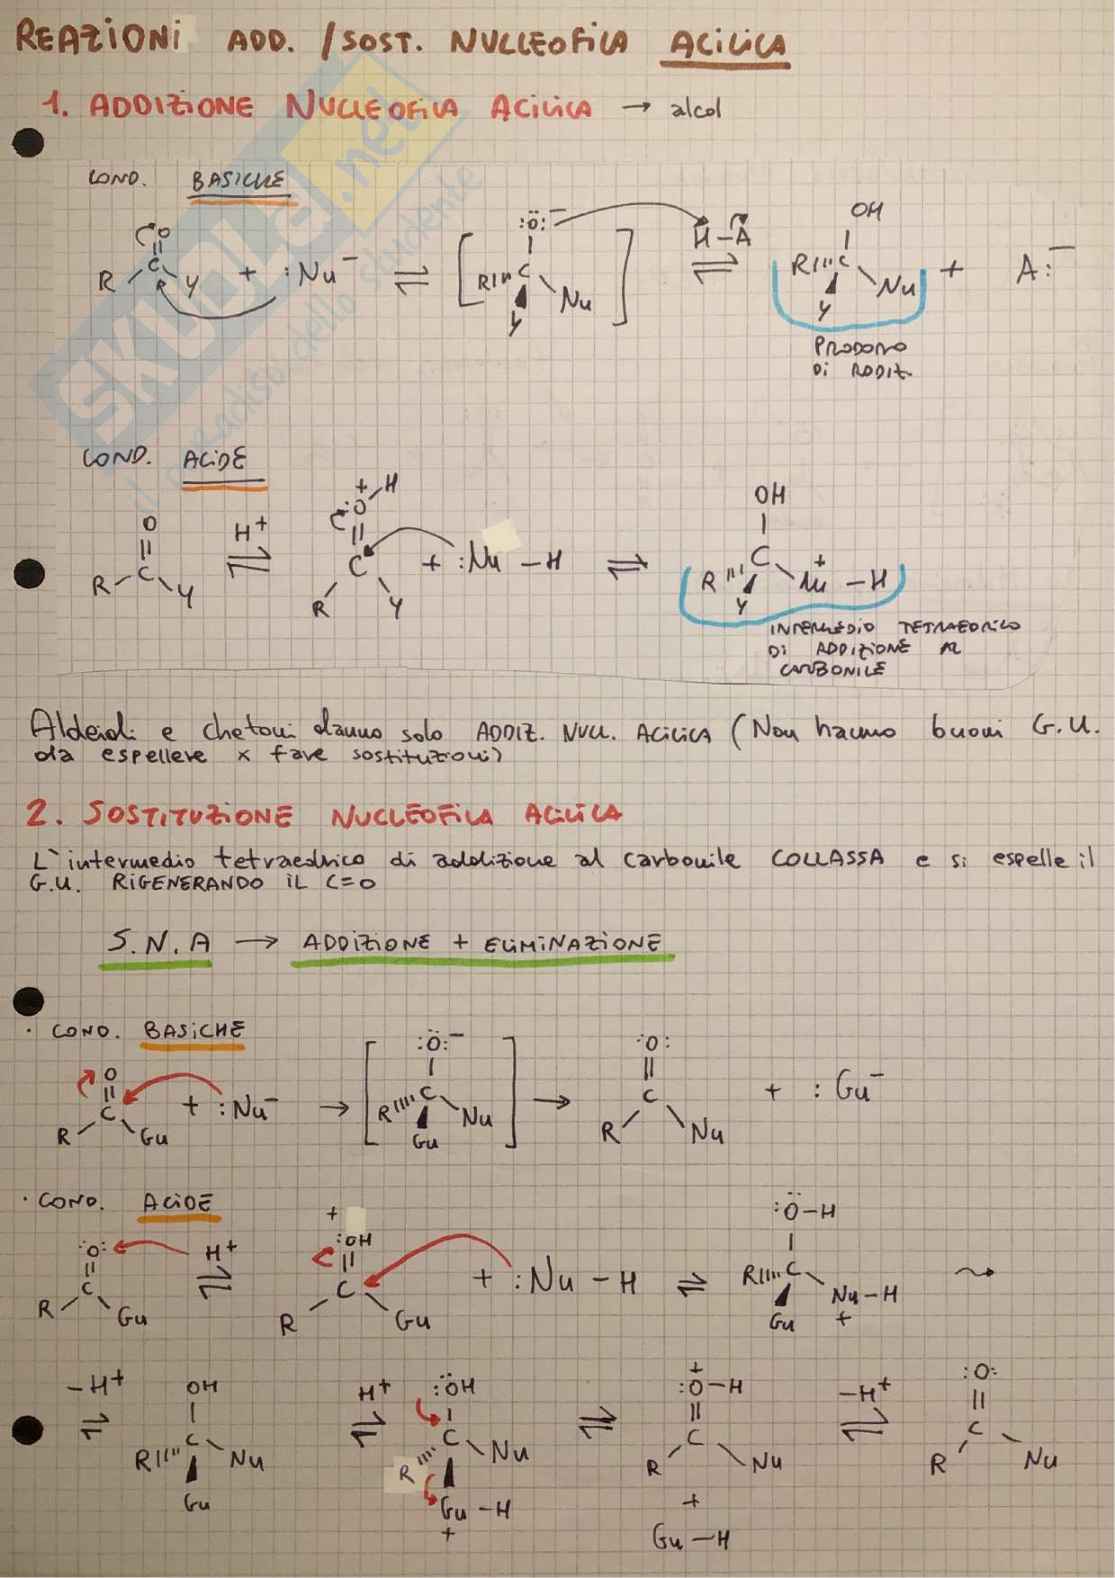 REAZIONI ADD. /SOST. NUCLEOFILA ACILICA
1. ADDIZIONE NUCLEOFILA ACILICA → alcol
COND. BASICHE
O
C
R Y + :Nu⁻ ⇌ [ :Ö:⁻ C R Y Nu ] H–A ⇌ OH R C Y Nu + A:⁻
PRODOTTO
DI ADDIZ.
COND. ACIDE
O
C
R Y H⁺ ⇌ + O H C R Y + :Nu–H ⇌ OH C R Y Nu⁺–H
INTERMEDIO TETRAEDRICO
DI ADDIZIONE AL
CARBONILE
Aldeidi e chetoni danno solo ADDIZ. NUCL. ACILICA (Non hanno buoni G.U.
da espellere x fare sostituzioni)
2. SOSTITUZIONE NUCLEOFILA ACILICA
L'intermedio tetraedrico di addizione al carbonile COLLASSA e si espelle il
G.U. RIGENERANDO IL C=O
S.N.A → ADDIZIONE + ELIMINAZIONE
· COND. BASICHE
O
C
R Gu + :Nu⁻ → [ :Ö:⁻ R C Gu Nu ] → :O: C R Nu + :Gu⁻
· COND. ACIDE
:O:
C
R Gu H⁺ ⇌ + :OH C R Gu + :Nu–H ⇌ :Ö–H R C Gu Nu–H +
–H⁺ ⇌ OH R C Nu Gu H⁺ ⇌ :ÖH C R Nu Gu–H + ⇌ + :O–H C R Nu + Gu–H –H⁺ ⇌ :O: C R Nu
SKUOLA.net
il paradiso dello studente